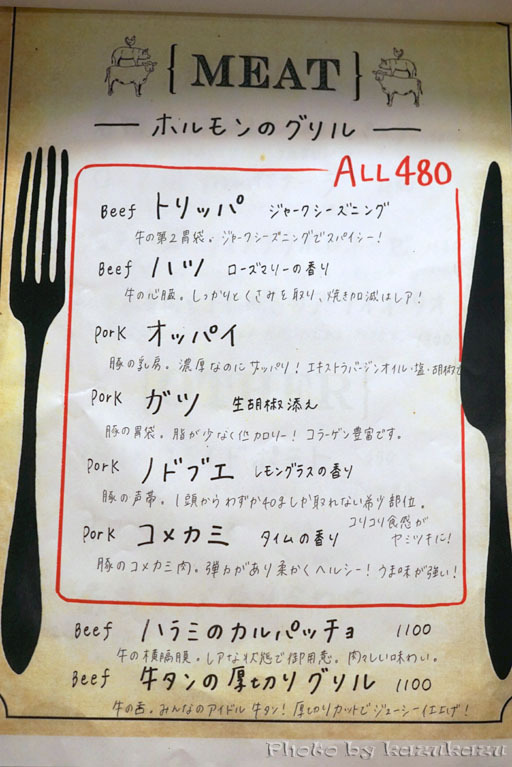 { MEAT }
ホルモンのグリル
ALL 480
Beef トリッパ ジャークシーズニング
牛の第2胃袋。ジャークシーズニングでスパイシー!
Beef ハツ ローズマリーの香り
牛の心臓。しっかりとくさみを取り、焼き加減はレア!
Pork オッパイ
豚の乳房。濃厚なのにサッパリ!エキストラバージンオイル・塩・胡椒で
Pork ガツ 生胡椒添え
豚の胃袋。脂が少なく低カロリー!コラーゲン豊富です。
Pork ノドブエ レモングラスの香り
豚の声帯。1頭からわずか40gしか取れない希少部位。
コリコリ食感がヤミツキに!
Pork コメカミ タイムの香り
豚のコメカミ肉。弾力があり柔かくヘルシー!うま味が強い!
Beef ハラミのカルパッチョ 1100
牛の横隔膜。レアな状態で御用意。肉々しい味わい。
Beef 牛タンの厚切りグリル 1100
牛の舌。みんなのアイドル牛タン!厚切りカットでジューシー仕上げ!
Photo by kazukazu